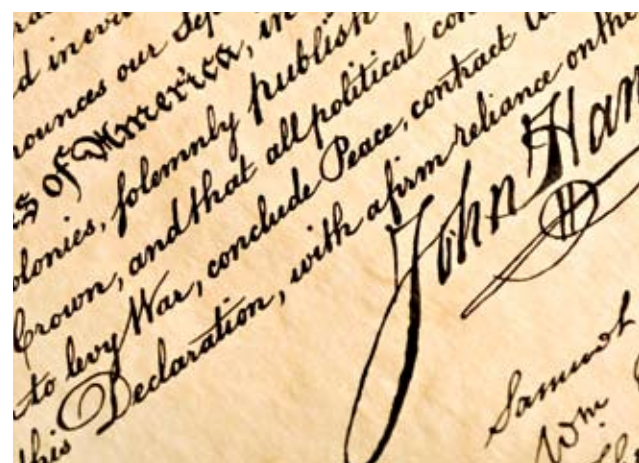 d in evi
nounces our Sep
s of America, in
olonies, solemnly publish
Crown, and that all political con
to levy War, conclude Peace, contract
this Declaration, with a firm reliance on the
John Han
Samuel
Wm